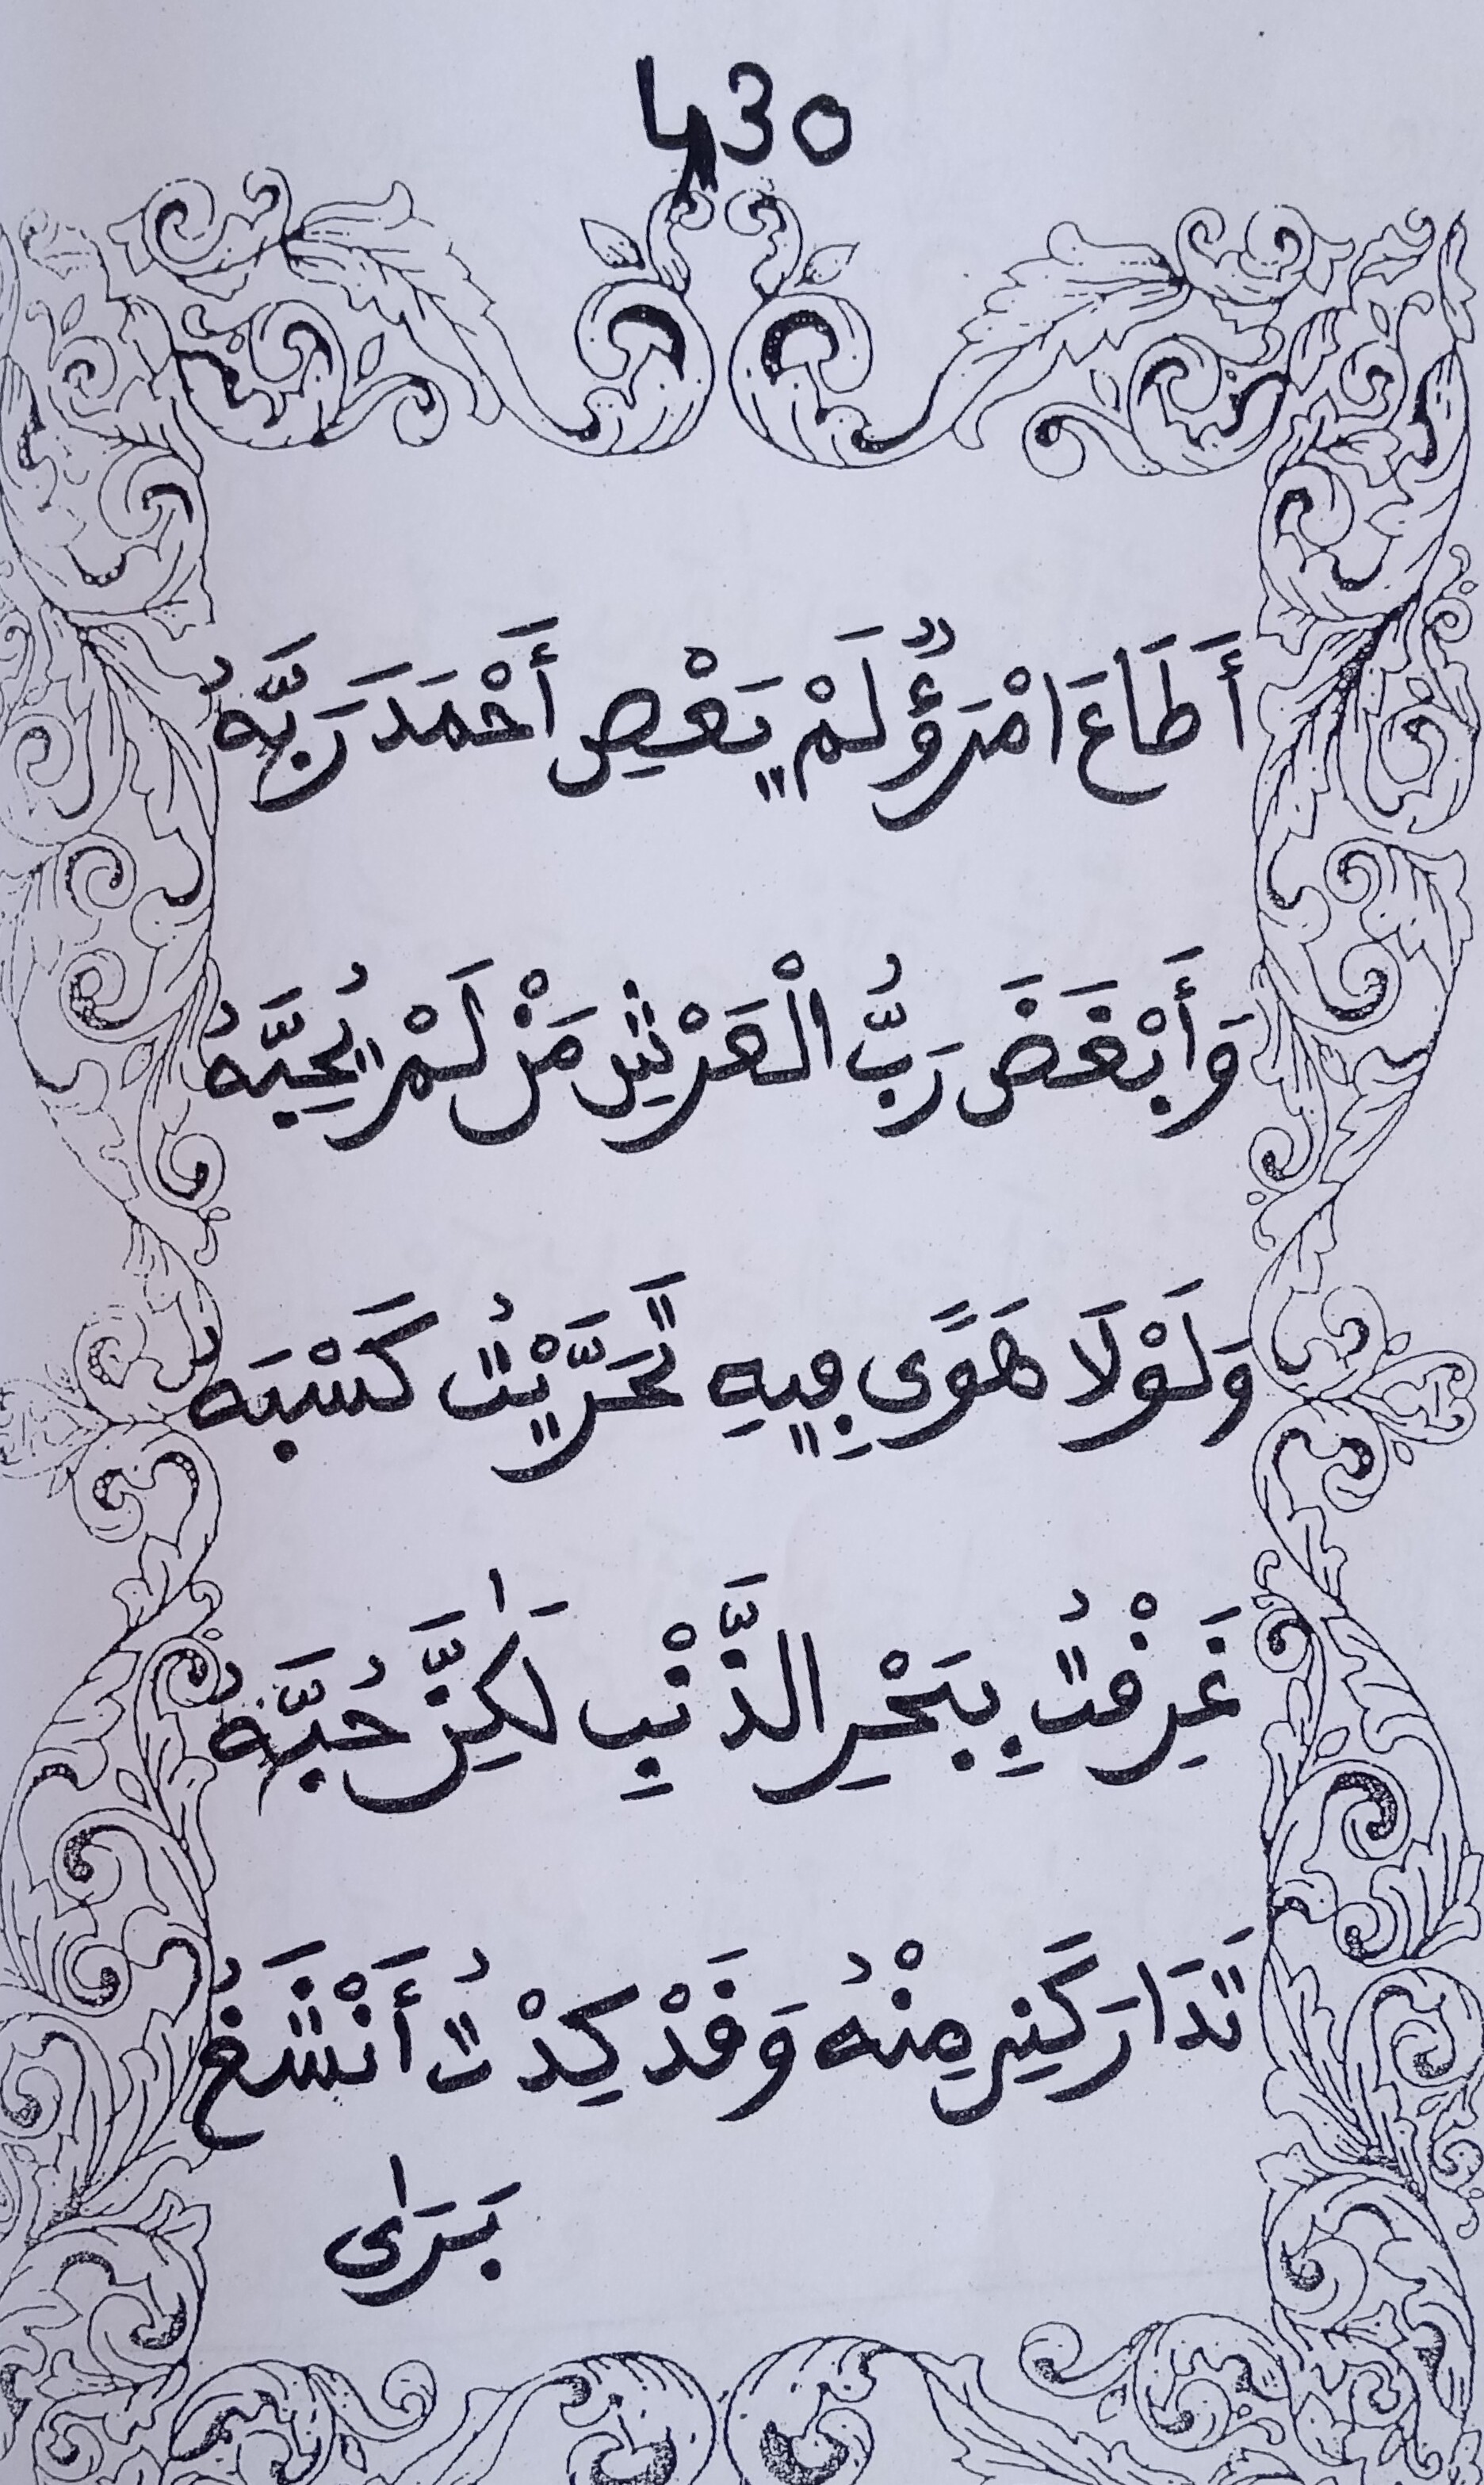 430
أَطَاعَ امْرَؤٌ لَمْ يَعْصِ أَحْمَدَ رَبَّهُ
وَأَبْغَضَ رَبُّ الْعَرْشِ مَنْ لَمْ يُحِبَّهُ
وَلَوْلَا هَوًى فِيهِ تَحَرَّيْتُ كَسْبَهُ
غَرِقْتُ بِبَحْرِ الذَّنْبِ لَٰكِنَّ حُبَّهُ
تَدَارَكَنِي مِنْهُ وَقَدْ كِدْتُ أَنْشَغُ
بَرَىٰ